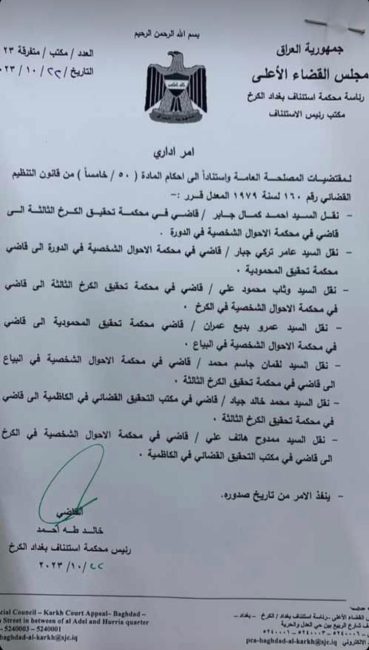 بسم الله الرحمن الرحيم
جمهورية العراق
مجلس القضاء الأعلى
رئاسة محكمة استئناف بغداد الكرخ
مكتب رئيس الاستئناف
العدد / مكتب / متفرقة / ٢٣
التاريخ / ٢٢ / ١٠ / ٢٠٢٣
امر اداري
لمقتضيات المصلحة العامة واستناداً الى احكام المادة ( ٥٠ / خامساً ) من قانون التنظيم
القضائي رقم ١٦٠ لسنة ١٩٧٩ المعدل قرر :-
- نقل السيد احمد كمال جابر / قاضي في محكمة تحقيق الكرخ الثالثة الى
قاضي في محكمة الاحوال الشخصية في الدورة .
- نقل السيد عامر تركي جبار / قاضي في محكمة الاحوال الشخصية في الدورة الى قاضي
محكمة تحقيق المحمودية .
- نقل السيد وثاب محمود علي / قاضي في محكمة تحقيق الكرخ الثالثة الى قاضي
في محكمة الاحوال الشخصية في الكرخ .
- نقل السيد عمرو بديع عمران / قاضي محكمة تحقيق المحمودية الى قاضي
في محكمة الاحوال الشخصية في البياع .
- نقل السيد نقمان جاسم محمد / قاضي في محكمة الاحوال الشخصية في البياع
الى قاضي في محكمة تحقيق الكرخ الثالثة .
- نقل السيد محمد خالد جياد / قاضي في مكتب التحقيق القضائي في الكاظمية الى قاضي
في محكمة تحقيق الكرخ الثالثة .
- نقل السيد ممدوح هاتف علي / قاضي في محكمة الاحوال الشخصية في الكرخ
الى قاضي في مكتب التحقيق القضائي في الكاظمية .
- ينفذ الامر من تاريخ صدوره.
القاضي
خالد طه احمد
رئيس محكمة استئناف بغداد الكرخ
٢٠٢٣/١٠/٢٢
cial Council – Karkh Court Appeal– Baghdad –
Street in between of al Adel and Hurria quarter
- 5240003 – 5240001
baghdad-al-karkh@sjc.iq
القضاء الأعلى -رئاسة استئناف بغداد / الكرخ - بغداد -
شارع الربيع بين حي العدل والحرية
٥٢٤٠٠٠١ - ٥٢٤٠٠٠٣
pra-baghdad-al-karkh@sjc.iq